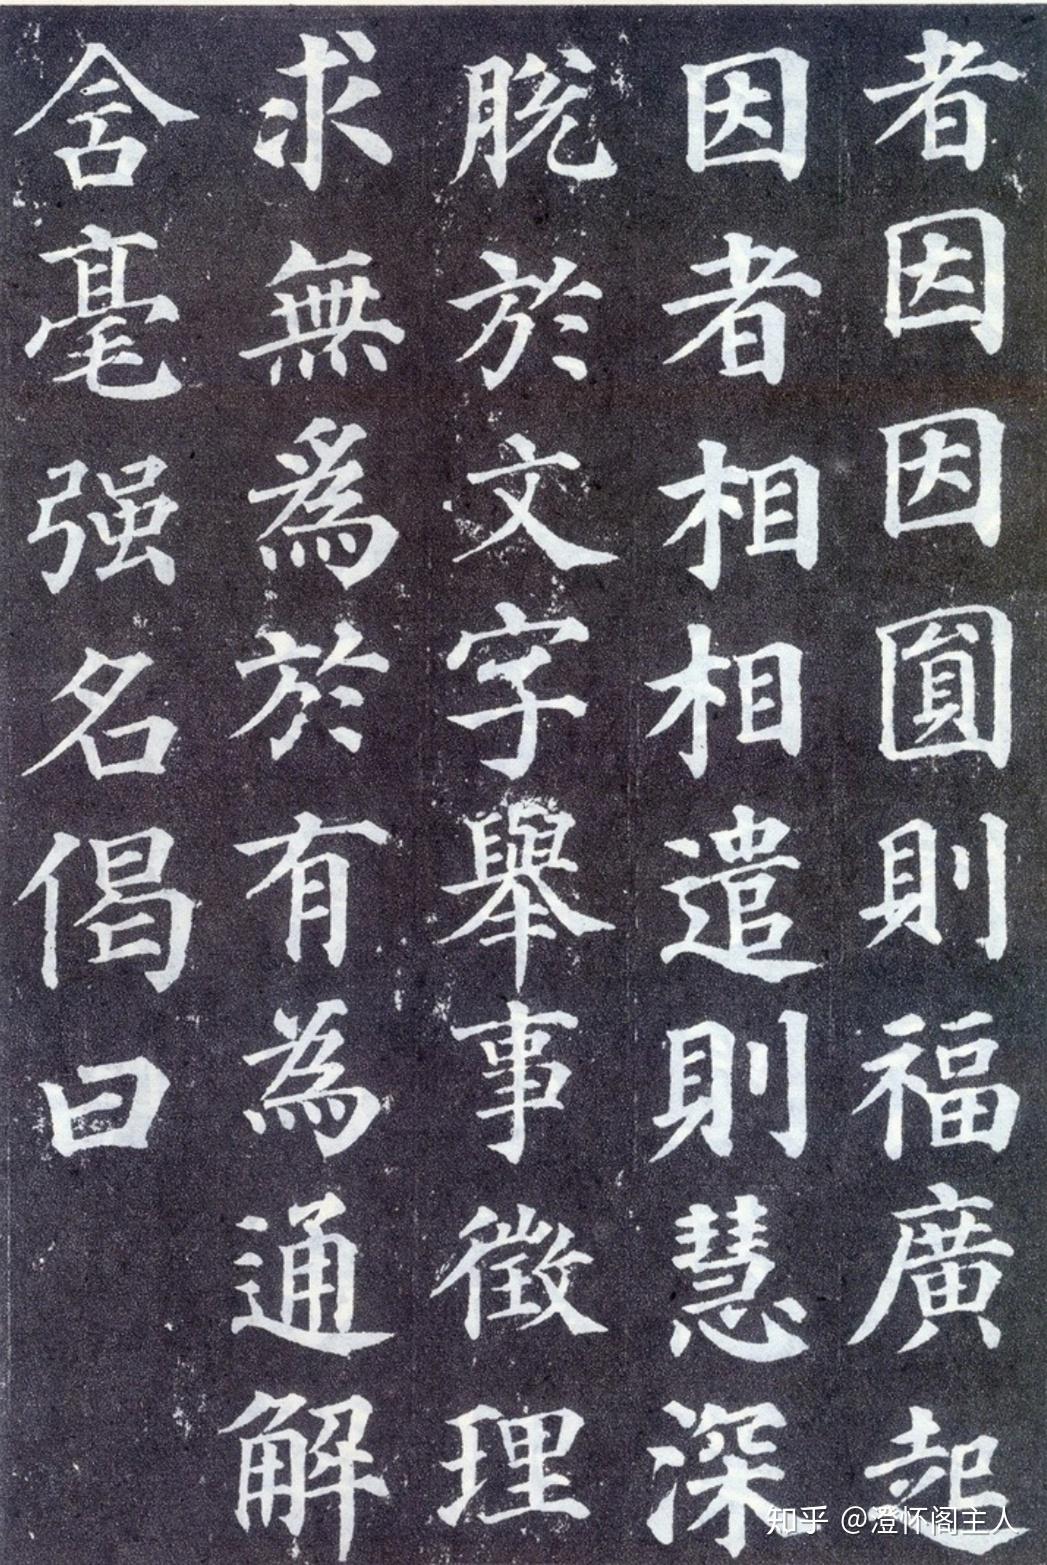 者因因圎則福廣起
因者相相遣則慧深
脱於文字舉事徵理
求無為於有為通解
含毫强名偈曰
知乎 @澄怀阁主人